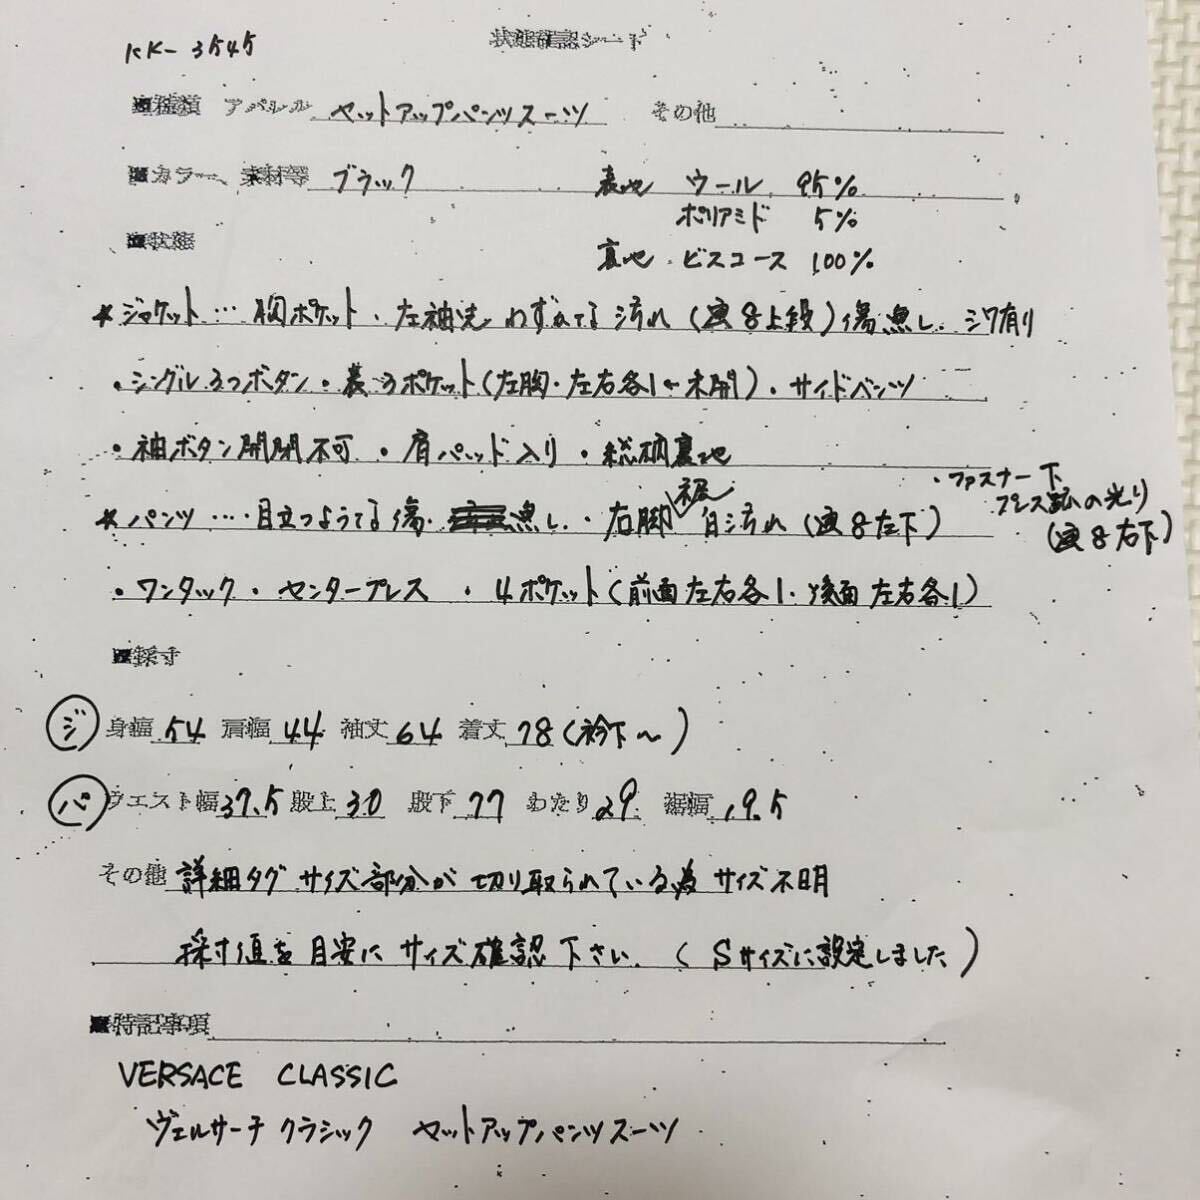 KK-3545
状態確認シート
■種類 アパレル セットアップパンツスーツ その他
■カラー、素材等 ブラック 表地 ウール 95%
ポリアミド 5%
■状態
裏地・ビスコース 100%
*ジャケット…胸ポケット・左袖先わずかな汚れ(画8上段)傷無し、シワ有り
・シングル3つボタン・裏3ポケット(左胸・左右各1←未開)・サイドベンツ
・袖ボタン開閉不可・肩パッド入り・総柄裏地
・ファスナー下
プレス跡の光り
(画8右下)
*パンツ…目立つような傷・無し・右脚裾白汚れ(画8左下)
・ワンタック・センタープレス・4ポケット(前面左右各1・後面左右各1)
■採寸
ジ 身幅 54 肩幅 44 袖丈 64 着丈 78(衿下~)
パ ウエスト幅 37.5 股上 30 股下 77 わたり 29 裾幅 19.5
その他 詳細タグサイズ部分が切り取られている為サイズ不明
採寸値を目安にサイズ確認下さい。(Sサイズに設定しました)
■特記事項
VERSACE CLASSIC
ヴェルサーチクラシック セットアップパンツスーツ